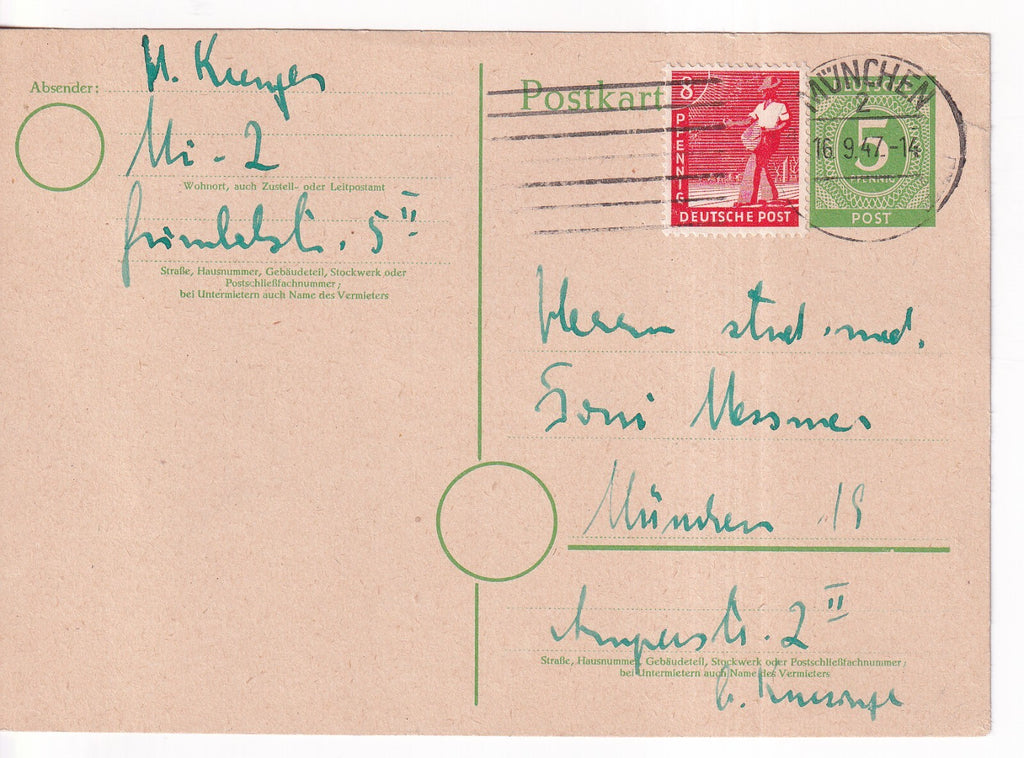 Absender:
Mü - 2
Wohnort, auch Zustell- oder Leitpostamt
5 II
Straße, Hausnummer, Gebäudeteil, Stockwerk oder
Postschließfachnummer;
bei Untermietern auch Name des Vermieters
Postkart
8
PFENNIG
DEUTSCHE POST
MÜNCHEN
2
16.9.47.-14
5
PFENNIG
POST
Herrn stud. med.
Toni Messmer
München 19
Amperstr. 2 II
Straße, Hausnummer, Gebäudeteil, Stockwerk oder Postschließfachnummer;
bei Untermietern auch Name des Vermieters
b.